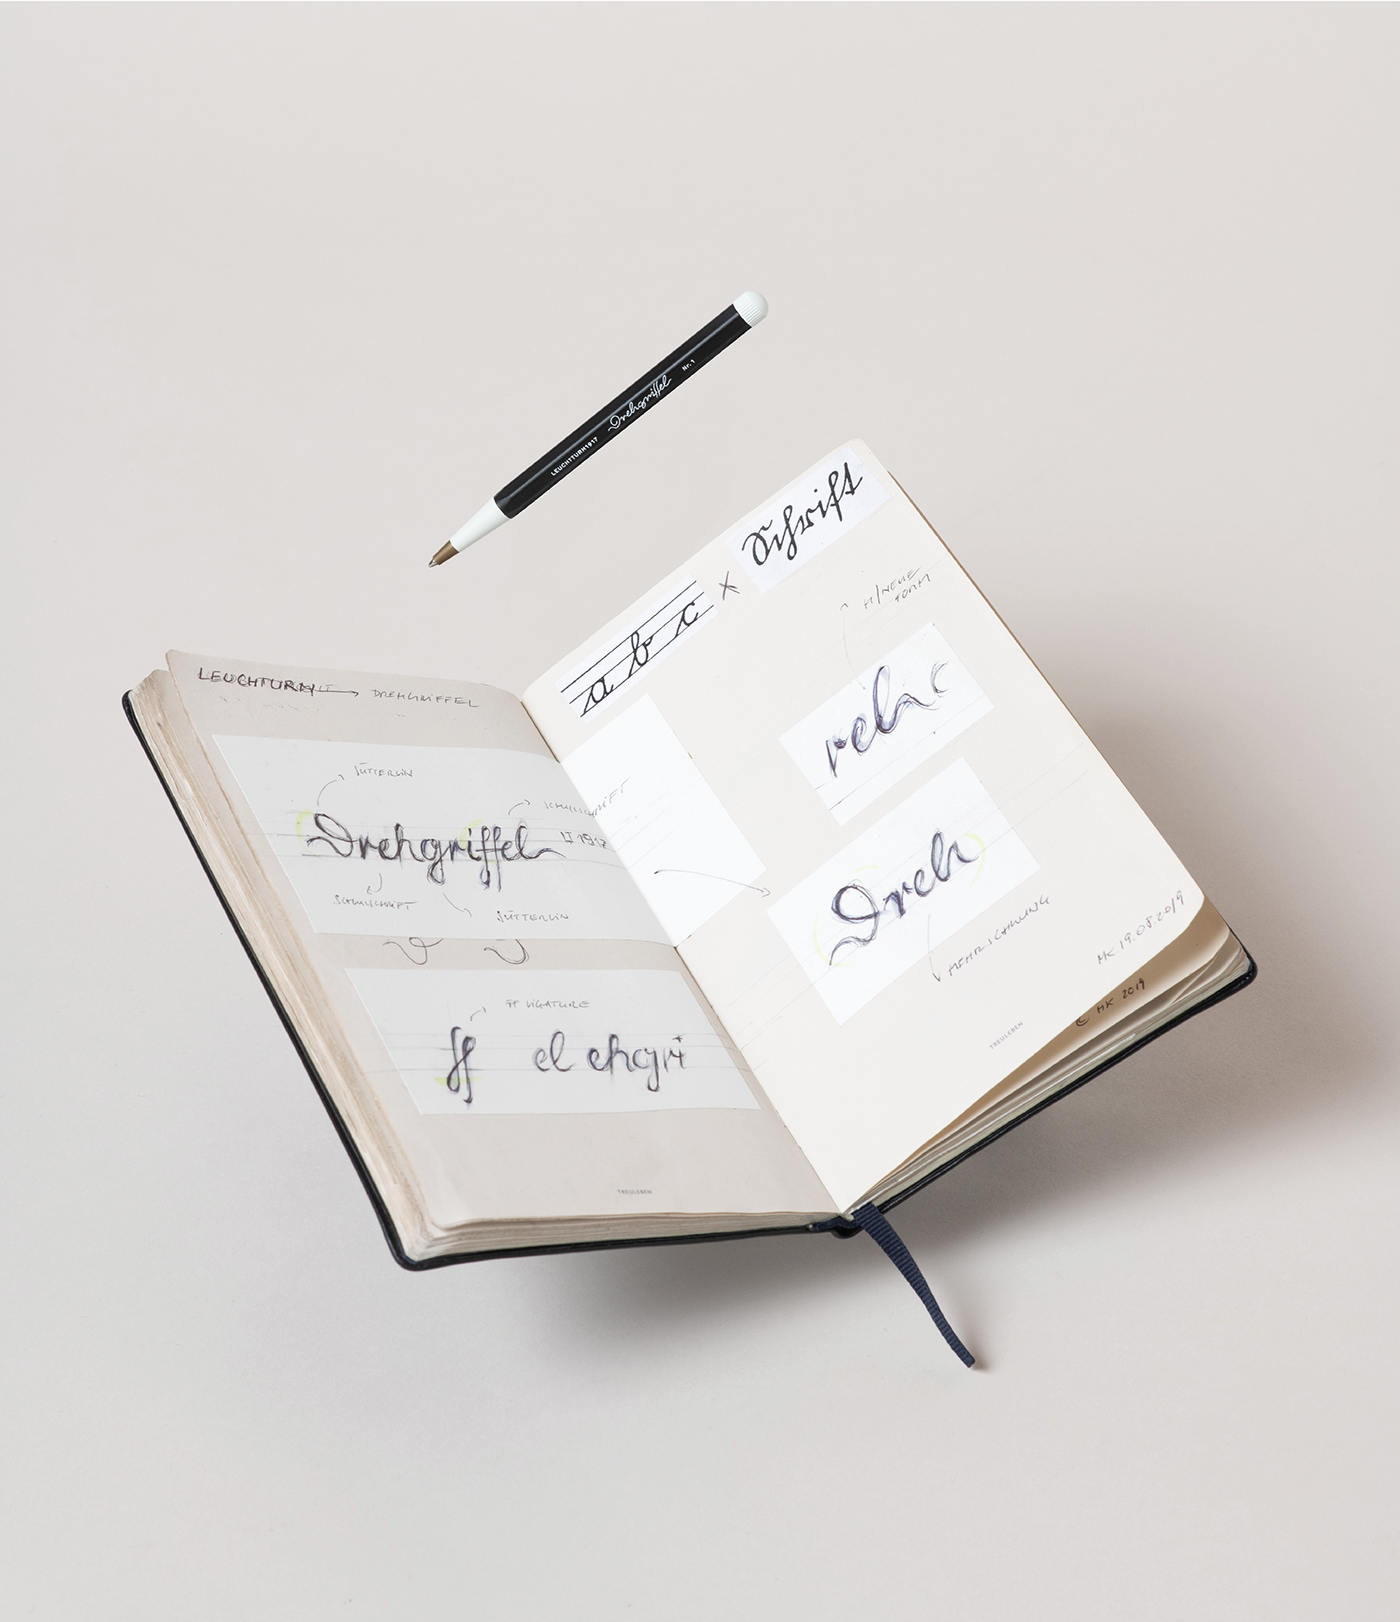 LEUCHTTURM1917 Drehgriffel Nr. 1
LEUCHTTURM → DREHGRIFFEL
SÜTTERLIN
SCHULSCHRIFT
Drehgriffel
SCHULSCHRIFT
SÜTTERLIN
ff LIGATURE
ff el ehgri
TREULEBEN
a b c × Schrift
H/NEUE
FORM
reh
Dreh
MEHR SCHWUNG
MK 19.08.2019
TREULEBEN
© MK 2019